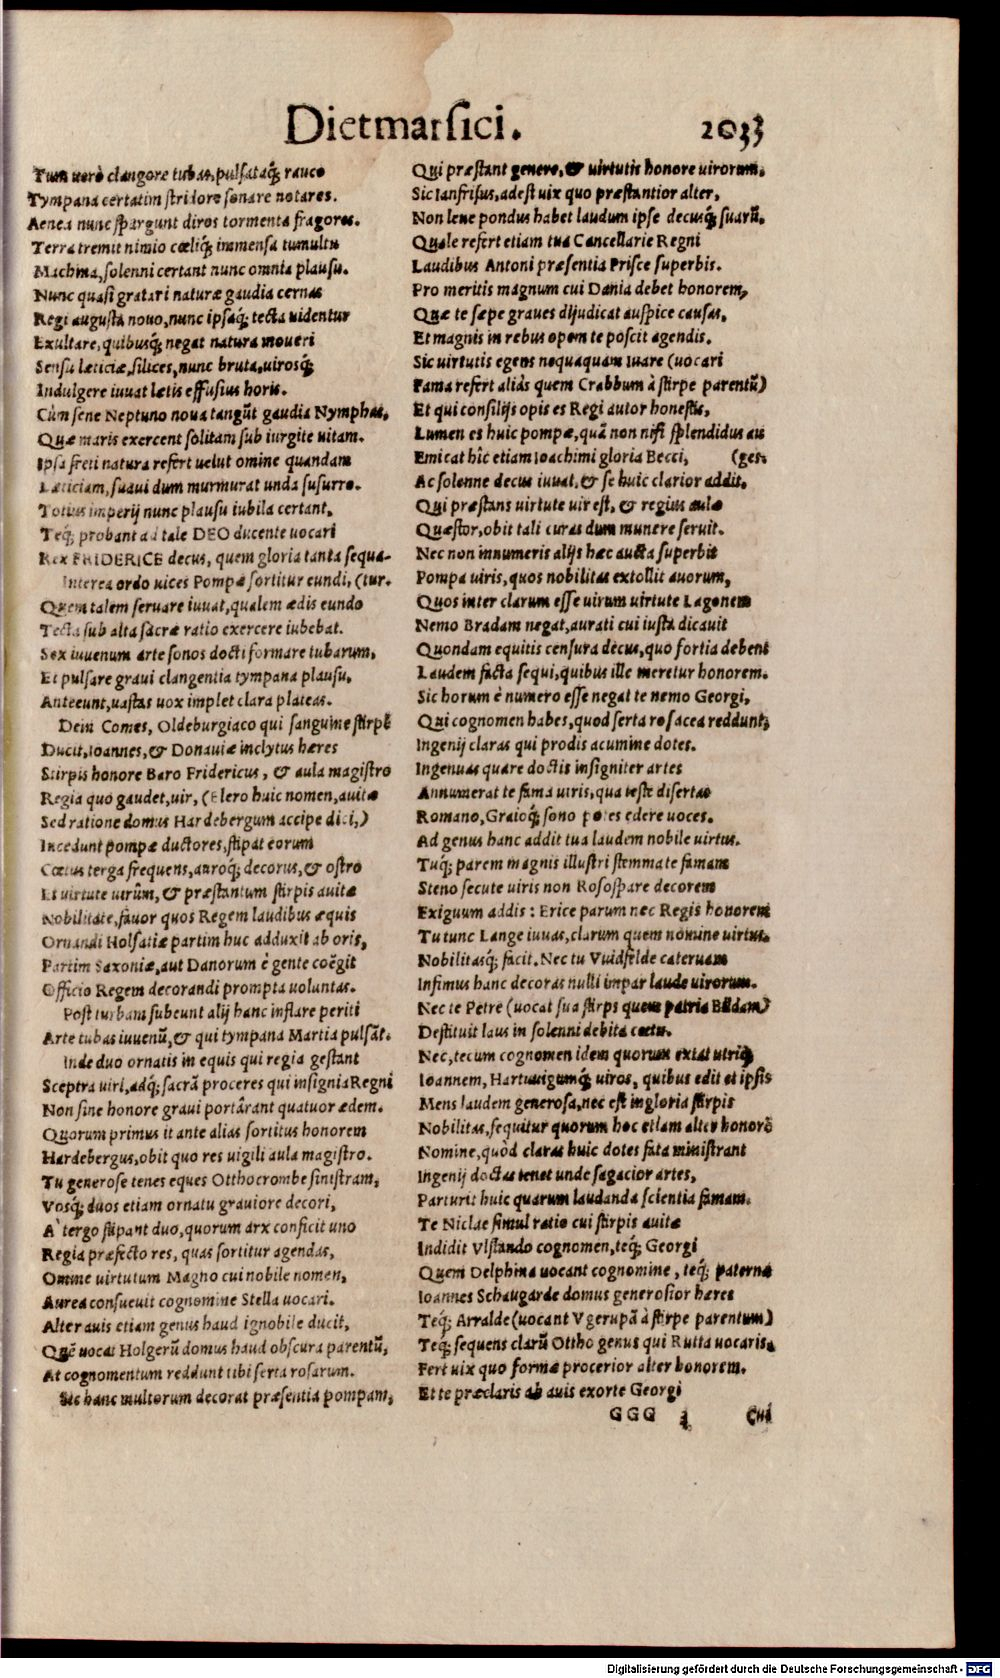 Dietmarsici. 2033
Tum uerò clangore tubas, pulsataq́; rauco
Tympana certatim stridore sonare notares.
Aenea nunc spargunt diros tormenta fragores.
Terra tremit nimio cœliq́; immensa tumultu
Machina, solenni certant nunc omnia plausu.
Nunc quasi gratari naturæ gaudia cernas
Regi augusta nouo, nunc ipsaq́; tecta uidentur
Exultare, quibusq́; negat natura moueri
Sensu læticiæ, silices, nunc bruta, uirosq́;
Indulgere iuuat lætis effusius horis.
Cùm sene Neptuno noua tangūt gaudia Nymphas,
Quæ maris exercent solitam sub iurgite uitam.
Ipsa freti natura refert uelut omine quandam
Læticiam, suaui dum murmurat unda susurro.
Totius imperij nunc plausu iubila certant,
Teq́; probant ad tale DEO ducente uocari
Rex FRIDERICE decus, quem gloria tanta sequa-
Interea ordo uices Pompæ sortitur eundi, (tur.
Quem talem seruare iuuat, qualem ædis eundo
Tecta sub alta sacræ ratio exercere iubebat.
Sex iuuenum arte sonos docti formare tubarum,
Et pulsare graui clangentia tympana plausu,
Anteeunt, uastas uox implet clara plateas.
Dein Comes, Oldeburgiaco qui sanguine stirpē
Ducit, Ioannes, & Donauiæ inclytus hæres
Stirpis honore Baro Fridericus, & aula magistro
Regia quo gaudet, uir, (Elero huic nomen, auitæ
Sed ratione domus Hardebergum accipe dici,)
Incedunt pompæ ductores, stipat eorum
Cœtus terga frequens, auroq́; decorus, & ostro
Et uirtute uirûm, & præstantum stirpis auitæ
Nobilitate, fauor quos Regem laudibus æquis
Ornandi Holsatiæ partim huc adduxit ab oris,
Partim Saxoniæ, aut Danorum è gente coëgit
Officio Regem decorandi prompta uoluntas.
Post turbam subeunt alij hanc inflare periti
Arte tubas iuuenū, & qui tympana Martia pulsāt.
Inde duo ornatis in equis qui regia gestant
Sceptra uiri, adq́; sacrā proceres qui insignia Regni
Non sine honore graui portârant quatuor ædem.
Quorum primus it ante alias sortitus honorem
Hardebergus, obit quo res uigili aula magistro.
Tu generose tenes eques Otthocrombe sinistram,
Vosq́; duos etiam ornatu grauiore decori,
A` tergo stipant duo, quorum arx conficit uno
Regia præfecto res, quas sortitur agendas,
Omine uirtutum Magno cui nobile nomen,
Aurea consueuit cognomine Stella uocari.
Alter auis etiam genus haud ignobile ducit,
Quē uocat Holgerū domus haud obscura parentū,
At cognomentum reddunt tibi serta rosarum.
Sic hanc multorum decorat præsentia pompam,
Qui præstant genere, & uirtutis honore uirorum.
Sic Ianfrisus, adest uix quo præstantior alter,
Non leue pondus habet laudum ipse decusq́; suarū,
Quale refert etiam tua Cancellarie Regni
Laudibus Antoni præsentia Prisce superbis.
Pro meritis magnum cui Dania debet honorem,
Quæ te sæpe graues dijudicat auspice causas,
Et magnis in rebus opem te poscit agendis.
Sic uirtutis egens nequaquam Iuare (uocari
Fama refert aliàs quem Crabbum à stirpe parentū)
Et qui consilijs opis es Regi autor honestis,
Lumen es huic pompæ, quā non nisi splendidus au
Emicat hîc etiam Ioachimi gloria Becci, (ges.
Ac solenne decus iuuat, & se huic clarior addit,
Qui præstans uirtute uir est, & regius aulæ
Quæstor, obit tali curas dum munere seruit.
Nec non innumeris alijs hæc aucta superbit
Pompa uiris, quos nobilitas extollit auorum,
Quos inter clarum esse uirum uirtute Lagonem
Nemo Bradam negat, aurati cui iusta dicauit
Quondam equitis censura decus, quo fortia debent
Laudem facta sequi, quibus ille meretur honorem.
Sic horum è numero esse negat te nemo Georgi,
Qui cognomen habes, quod serta rosacea reddunt,
Ingenij claras qui prodis acumine dotes.
Ingenuas quare doctis insigniter artes
Annumerat te fama uiris, qua teste disertas
Romano, Graioq́; sono potes edere uoces.
Ad genus hanc addit tua laudem nobile uirtus.
Tuq́; parem magnis illustri stemmate famam
Steno secute uiris non Rososparre decorem
Exiguum addis: Erice parum nec Regis honorem
Tu tunc Lange iuuas, clarum quem nomine uirtus.
Nobilitasq́; facit. Nec tu Vuidfelde cateruam
Infimus hanc decoras nulli impar laude uirorum.
Nec te Petre (uocat sua stirps quem patria Bildam)
Destituit laus in solenni debita cœtu.
Nec, tecum cognomen idem quorum extat utriq́;
Ioannem, Hartuuigumq́; uiros, quibus edit et ipsis
Mens laudem generosa, nec est ingloria stirpis
Nobilitas, sequitur quorum hoc etiam alter honorē
Nomine, quòd claras huic dotes fata ministrant
Ingenij doctas tenet unde sagacior artes,
Parturit huic quarum laudanda scientia famam.
Te Niclae simul ratio cui stirpis auitæ
Indidit Vlstando cognomen, teq́; Georgi
Quem Delphina uocant cognomine, teq́; paternæ
Ioannes Schaugarde domus generosior hæres
Teq́; Arralde (uocant Vgerupā à stirpe parentum)
Teq́; sequens clarū Ottho genus qui Rutta uocaris,
Fert uix quo formæ procerior alter honorem.
Et te præclaris ab auis exorte Georgi
GGG 3 Cui
Digitalisierung gefördert durch die Deutsche Forschungsgemeinschaft - DFG